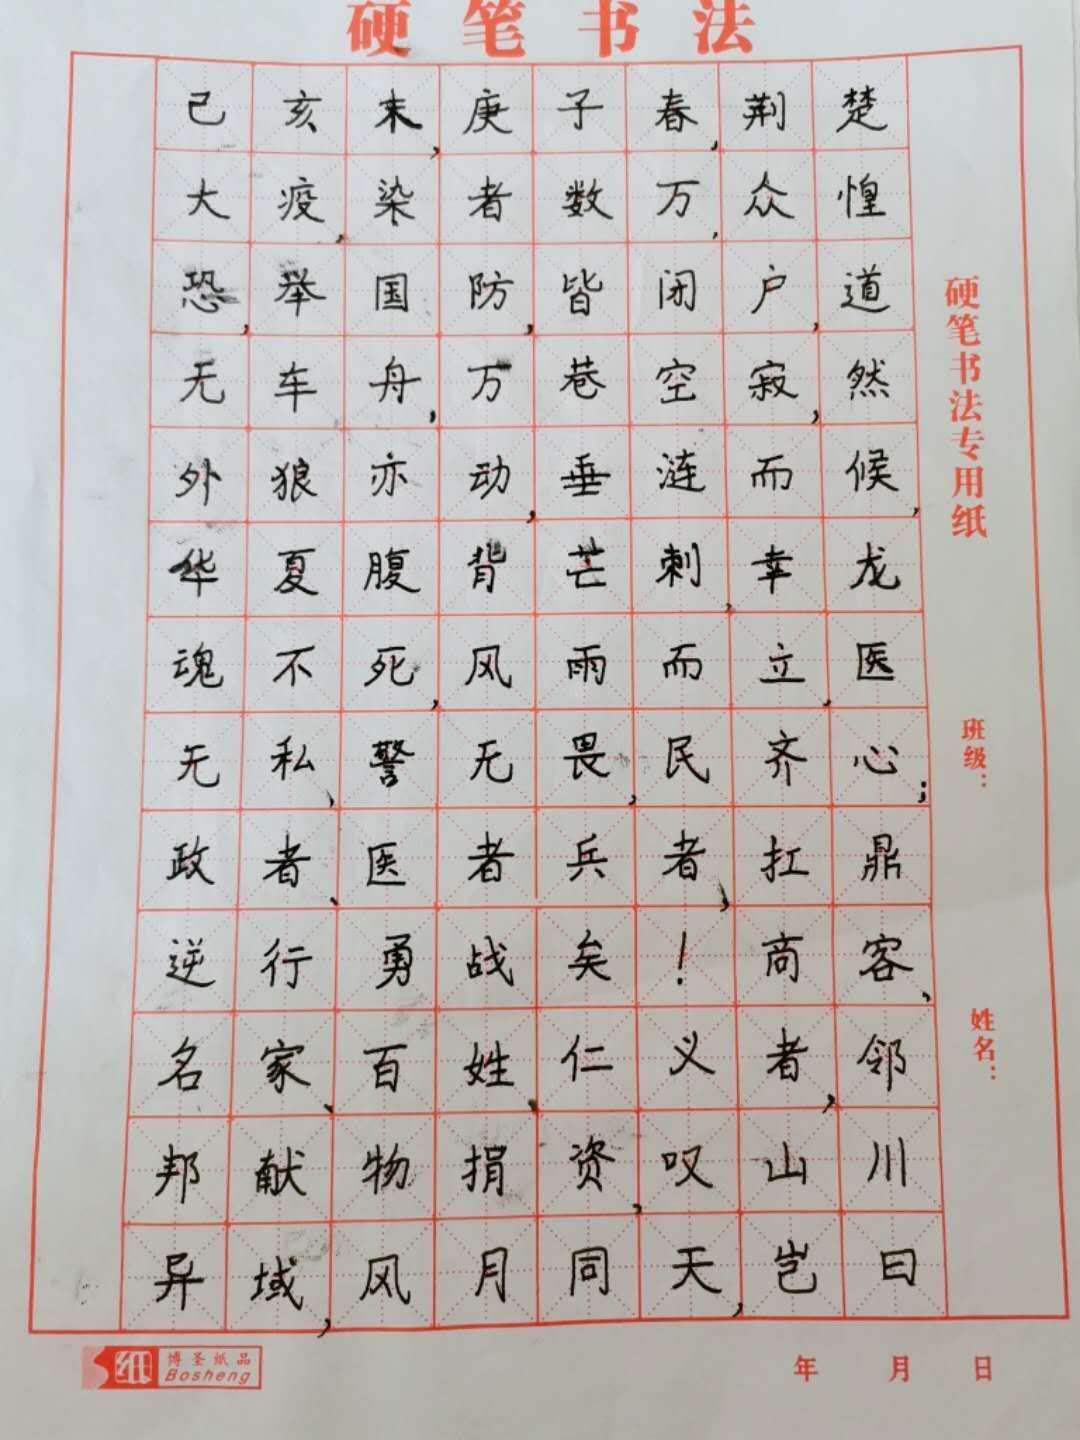 硬笔书法
己亥末,庚子春,荆楚
大疫,染者数万,众惶
恐,举国防,皆闭户,道
无车舟,万巷空寂,然
外狼亦动,垂涟而候,
华夏腹背芒刺,幸龙
魂不死,风雨而立,医
无私,警无畏,民齐心;
政者、医者兵者,扛鼎
逆行勇战矣!商客、
名家、百姓、仁义者,邻
邦献物捐资,叹山川
异域,风月同天,岂曰
硬笔书法专用纸
班级:
姓名:
纸 博圣纸品
Bosheng
年 月 日